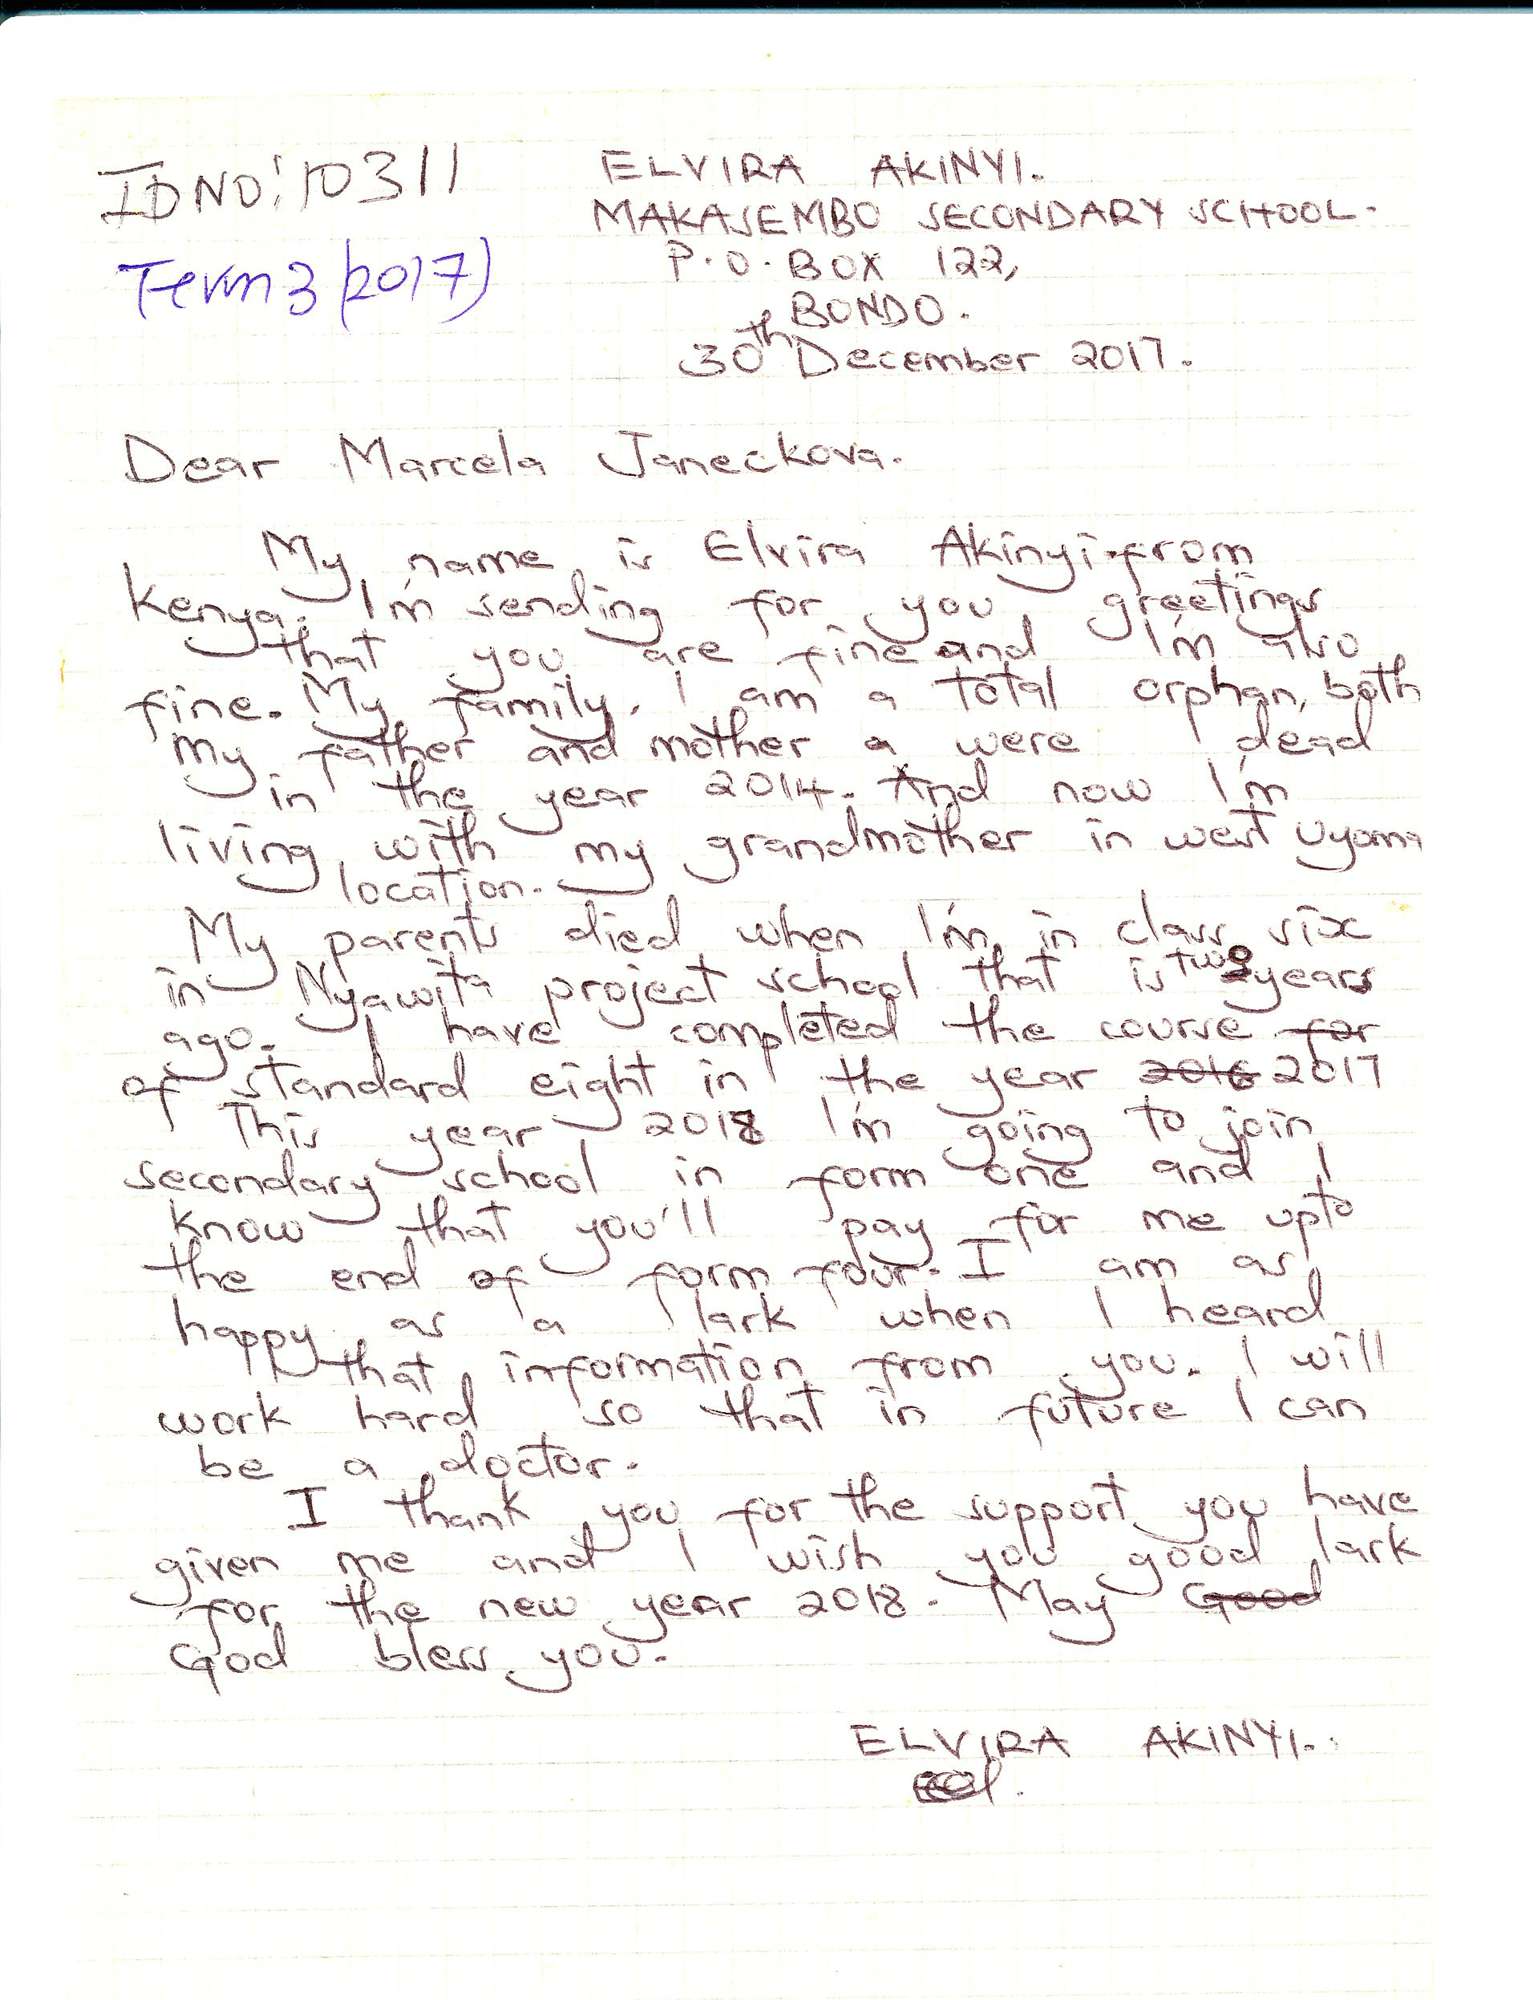 IDNO: 10311
Term 3 (2017)
ELVIRA AKINYI.
MAKASEMBO SECONDARY SCHOOL.
P.O. BOX 122,
BONDO.
30th December 2017.
Dear Marcela Janeckova.
My name is Elvira Akinyi from
Kenya. I'm sending for you greetings
that you are fine and I'm also
fine. My family. I am a total orphan, both
my father and mother a were dead
in the year 2014. And now I'm
living with my grandmother in west Uyoma
location.
My parents died when I'm in class six
in Nyawita project school that is two years
ago. I have completed the course for
of standard eight in the year 2016 2017
This year 2018 I'm going to join
secondary school in form one and I
know that you'll pay for me upto
the end of form four. I am as
happy as a lark when I heard
that information from you. I will
work hard so that in future I can
be a doctor.
I thank you for the support you have
given me and I wish you good lark
for the new year 2018. May Good
God bless you.
ELVIRA AKINYI.